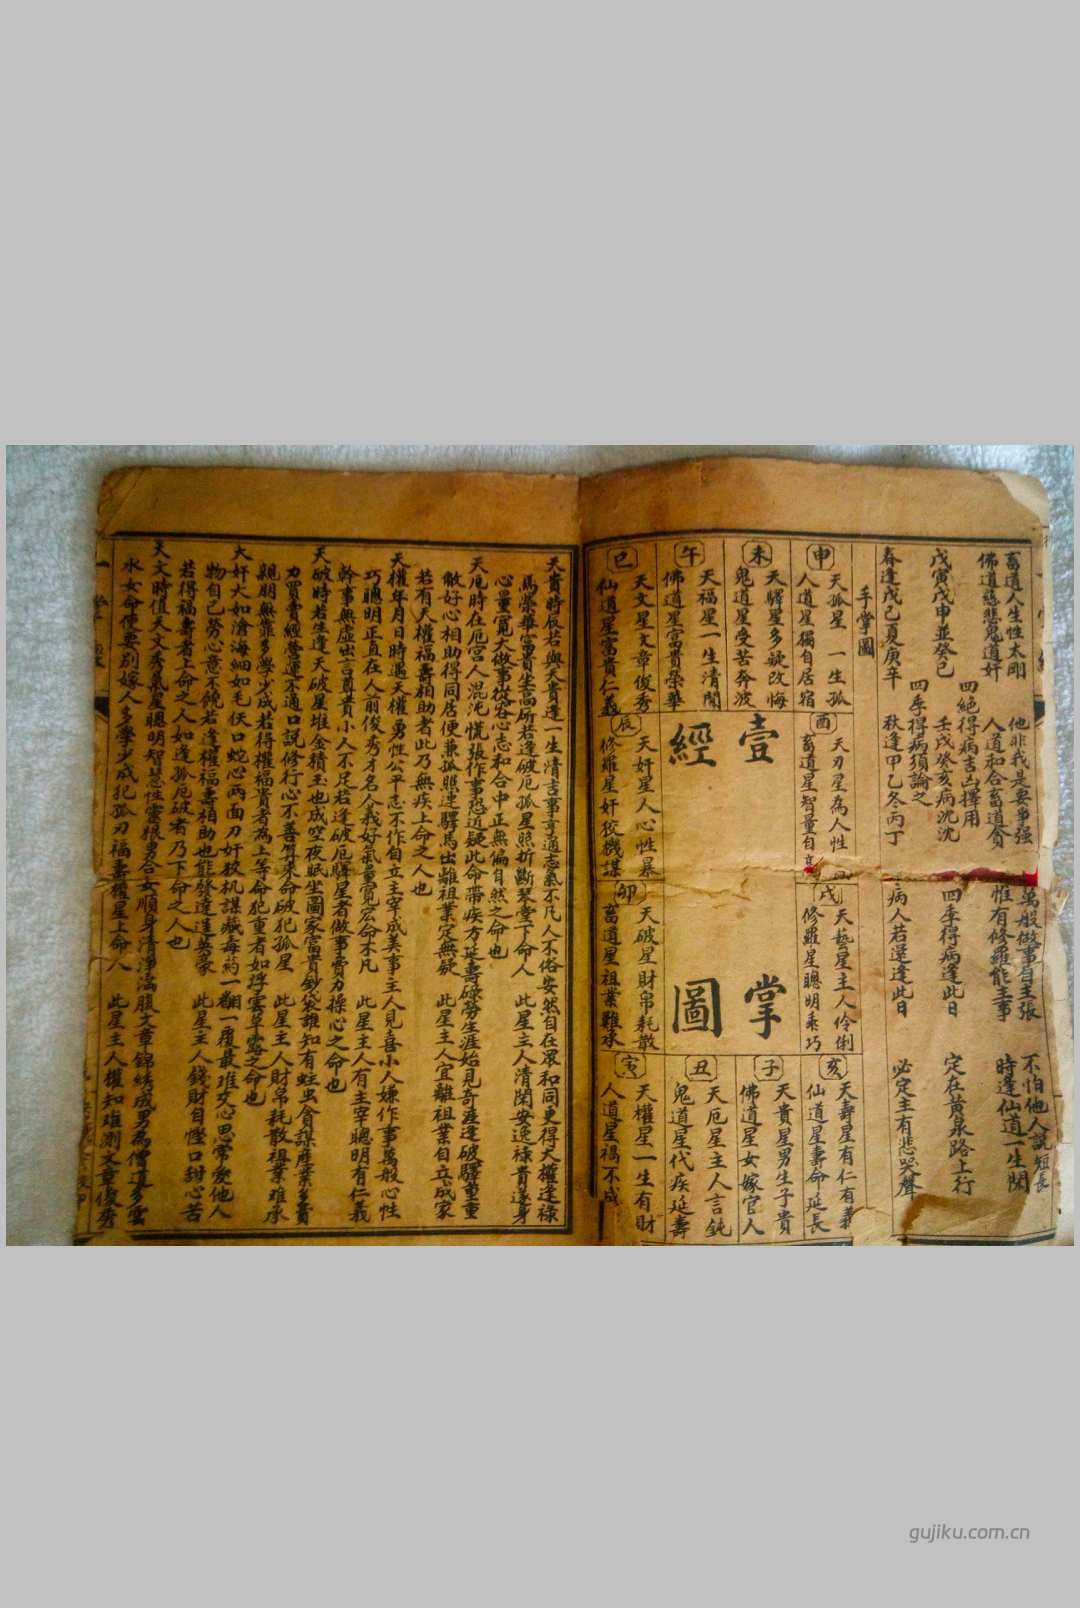 畜道人生性太剛 他非我是要爭强 萬般做事自主張 不怕他人說短長
佛道慈悲鬼道奸 人道和合畜道貪 惟有修羅能主事 時逢仙道一生閑
四絕得病吉凶擇用
戊寅戊申並癸巳 壬戌癸亥病沈沈 四季得病逢此日 定在黃泉路上行
四季得病須論之
春逢戊己夏庚辛 秋逢甲乙冬丙丁 病人若逢此日 必定主有悲哭聲
手掌圖
申
天孤星一生孤
人道星獨自居宿
未
天驛星多疑改悔
鬼道星受苦奔波
午
天福星一生清閒
佛道星富貴榮華
巳
天文星文章俊秀
仙道星富貴仁義
酉
天刃星為人性
畜道星智量自
壹掌
經圖
辰
天奸星人心性暴
修羅星奸狡機謀
戌
天藝星主人伶俐
修羅星聰明乘巧
卯
天破星財帛耗散
畜道星祖業難承
亥
天壽星有仁有義
仙道星壽命延長
子
天貴星男生子貴
佛道星女嫁官人
丑
天厄星主人言鈍
鬼道星代疾延壽
寅
天權星一生有財
人道星福不成
天貴時辰若與天貴逢一生清吉事亨通志氣不凡人不俗安然自在眾和同更得天權逢祿
馬榮華富貴坐高所若逢破厄孤星照折斷琴堂下命人 此星主人清閑安逸祿貴遂身
心量寬大做事從容心志和合中正無偏自然之命也
天厄時在厄宮人混沌慌張作事恐近疑此命帶疾方延壽碌勞生涯始見奇涯逢破驛重重
散好心相助得同居便兼孤照連驛馬出離祖業定無疑 此星主人宜離祖業自立成家
若有天權福壽相助者此乃無疾上命之人也
天權年月日時遇天權男性公平志不作自立主宰成美事主人見喜小人嫌作事萬般心性
巧聰明正直在人前俊秀才名人我好氣量寬宏命不凡 此星主人有主宰聰明有仁義
幹事無虛出言尊貴小人不足若逢破厄驛星者做事賣力操心之命也
天破時若生逢天破星堆金積玉也成空夜眠坐圖家富貴鈔袋誰知有蛀虫貪謀產業多賣
力買賣經營運不通口說修行心不善算來命破犯孤星 此星主人財帛耗散祖業难承
親朋無靠多學少成若得權福貴者為上等命犯重者如浮雲草露之命也
天奸大如滄海細如毛伏口蛇心两面刀奸狡机謀藏毒药一翻一覆最难交心思常愛他人
物自己勞心意不饒若逢權福壽相助也能發達逞英豪 此星主人錢財自慳口甜心苦
若得福壽者上命之人如逢孤厄破者乃下命之人也
天文時值天文秀氣星聰明智慧性靈狼男合女順身清淨滿腹文章錦綉成男為僧道多雲
水女命便要別嫁人多學少成犯孤刃福壽權星上命人 此星主人權知难測文章俊秀
gujiku.com.cn